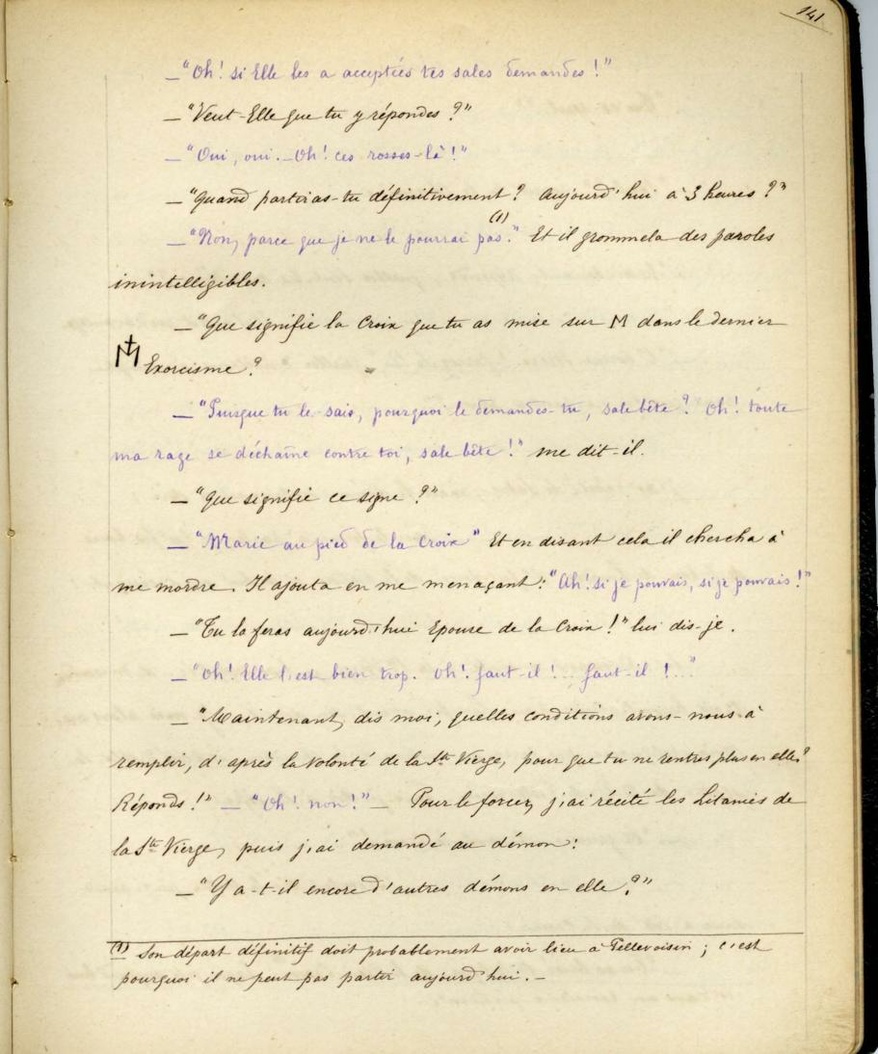 141
—"Oh! si Elle les a acceptées tes sales demandes!"
—"Veut-Elle que tu y répondes?"
—"Oui, oui. — Oh! ces rosses-là!"
—"Quand partiras-tu définitivement? Aujourd'hui à 3 heures?"
—"Non, parce que je ne le pourrai pas."(1) Et il grommela des paroles
inintelligibles.
—"Que signifie la Croix que tu as mise sur M dans le dernier
Exorcisme?
—"Puisque tu le sais, pourquoi le demandes-tu, sale bête? Oh! toute
ma rage se déchaîne contre toi, sale bête!" me dit-il.
—"Que signifie ce signe?"
—"Marie au pied de la Croix" Et en disant cela il chercha à
me mordre. Il ajouta en me menaçant: "Ah! si je pouvais, si je pouvais!"
—"Tu la feras aujourd'hui Epouse de la Croix!" lui dis-je.
—"Oh! Elle l'est bien trop. Oh! faut-il!... faut-il!..."
—"Maintenant, dis moi, quelles conditions avons-nous à
remplir, d'après la volonté de la Ste Vierge, pour que tu ne rentres plus en elle?
Réponds!" — "Oh! non!" — Pour le forcer, j'ai récité les Litanies de
la Ste Vierge, puis j'ai demandé au démon:
—"Y a-t-il encore d'autres démons en elle?"
(1) Son départ définitif doit probablement avoir lieu à Pellevoisin; c'est
pourquoi il ne peut pas partir aujourd'hui. —